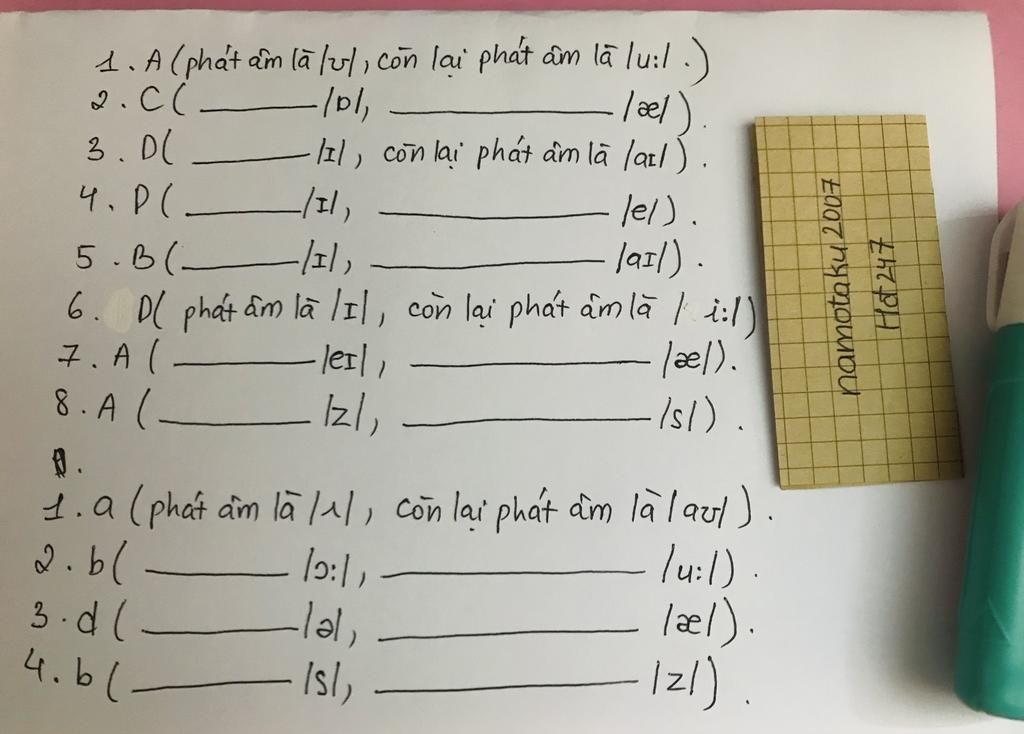 1. A (phát âm là /ʊ/, còn lại phát âm là /u:/ .)
2. C ( ________ /ɒ/, ________ /æ/ ).
3. D( ________ /ɪ/, còn lại phát âm là /aɪ/ ).
4. D ( ________ /ɪ/, ________ /e/ ).
5. B ( ________ /ɪ/, ________ /aɪ/ ).
6. D( phát âm là /ɪ/, còn lại phát âm là / i:/)
7. A ( ________ /eɪ/, ________ /æ/).
8. A ( ________ /z/, ________ /s/ ).
1. a (phát âm là /ʌ/, còn lại phát âm là /aʊ/ ).
2. b ( ________ /ɔ:/, ________ /u:/ ).
3. d ( ________ /ə/, ________ /æ/ ).
4. b ( ________ /s/, ________ /z/ ).
namotaku2007
Hd247